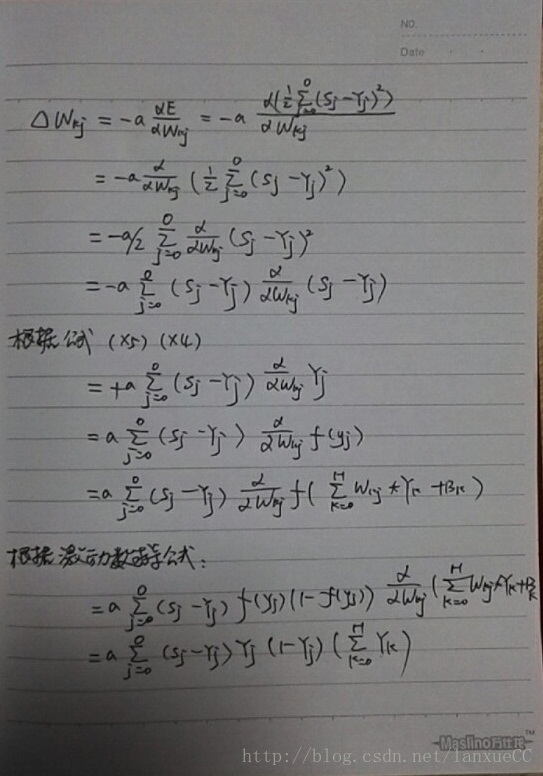 NO.
Date
ΔWkj = -a αE/αWkj = -a α(½ ∑_{j=0}^{O} (Sj-Yj)²)/αWkj
= -a α/αWkj (½ ∑_{j=0}^{O} (Sj-Yj)²)
= -a/2 ∑_{j=0}^{O} α/αWkj (Sj-Yj)²
= -a ∑_{j=0}^{O} (Sj-Yj) α/αWkj (Sj-Yj)
根据公式 (x5) (x4)
= +a ∑_{j=0}^{O} (Sj-Yj) α/αWkj Yj
= a ∑_{j=0}^{O} (Sj-Yj) α/αWkj f(yj)
= a ∑_{j=0}^{O} (Sj-Yj) α/αWkj f( ∑_{k=0}^{H} Wkj*Yk +Bk )
根据激动数学公式:
= a ∑_{j=0}^{O} (Sj-Yj) f(yj) (1-f(yj)) α/αWkj ( ∑_{k=0}^{H} Wkj*Yk+Bk
= a ∑_{j=0}^{O} (Sj-Yj) Yj (1-Yj) ( ∑_{k=0}^{H} Yk )
Maslino
http://blog.csdn.net/lanxueCC